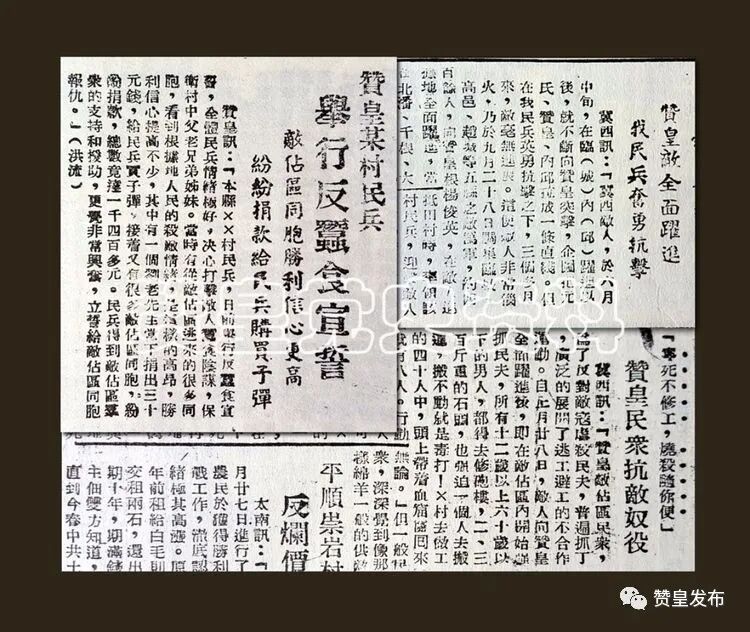 贊皇敵全面躍進
我民兵奮勇抗擊
冀西訊：「冀西敵人，於六月
中旬，在臨（城）內（邱）躍進以
後，就不斷向贊皇突擊，企圖把元
氏、贊皇、內邱拉成一條直綫，但
在我民兵英勇抗擊之下，三個多月
來，敵毫無進展。這使敵人非常惱
火，乃於九月二十八日
高邑、趙城等五縣之敵偽軍，約
百餘人，向贊皇根楊俊英，在敵人進
據地全面躍進，當
村民兵，迎擊敵人
贊皇某村民兵
舉行反蠶食宣誓
敵佔區同胞勝利信心更高
紛紛捐款給民兵購買子彈
贊皇訊：「本縣××村民兵，日前舉行反蠶食宣
誓，全體民兵情緒極好，決心打擊敵人蠶食陰謀，保
衛村中父老兄弟姊妹。當時有從敵佔區逃來的很多同
胞，看到根據地人民的殺敵情緒，是這樣的高昂，勝
利信心提高不少，其中有一個劉老先生當場捐出三十
元錢，給民兵買子彈，接着又有很多敵佔區同胞，紛
紛捐款，總數竟達一千四百多元。民兵得到敵佔區羣
衆的支持和援助，更覺非常興奮，立誓給敵佔區同胞
報仇。」（洪流）
「寧死不修工，燒殺隨你便」
贊皇民衆抗敵奴役
冀西訊：「贊皇敵佔區民衆，
爲了反對敵寇虐殺民夫，普遍抓丁
，廣泛的展開了逃工避工的不合作
運動。自上月廿八日，敵人向贊皇
全面躍進後，即在敵佔區內開始强
抓民夫，所有十二歲以上六十歲以
下的男人，都得去修碉樓，二、三
百斤重的石頭，也强迫一個人去搬
運，搬不動就是毒打！×村去做工
的四十人中，頭上帶着血窟窿囘來
就有八人。行動
無論。」但一般民
衆，深深覺到像那
樣綿羊一般的供敵
平順崇岩村
反爛價
太南訊：「
月廿七日進行了
農民於獲得勝利
戰工作，澈底認
緒極其高漲。原
年前租給白毛則
交租兩石，還出
期十年，期滿錢
主佃雙方知道，
直到今春中共土
贊皇党史資料
赞皇发布